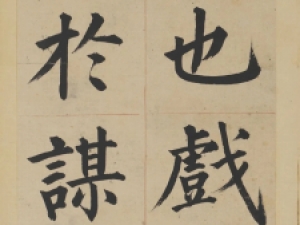 也戲
於謀